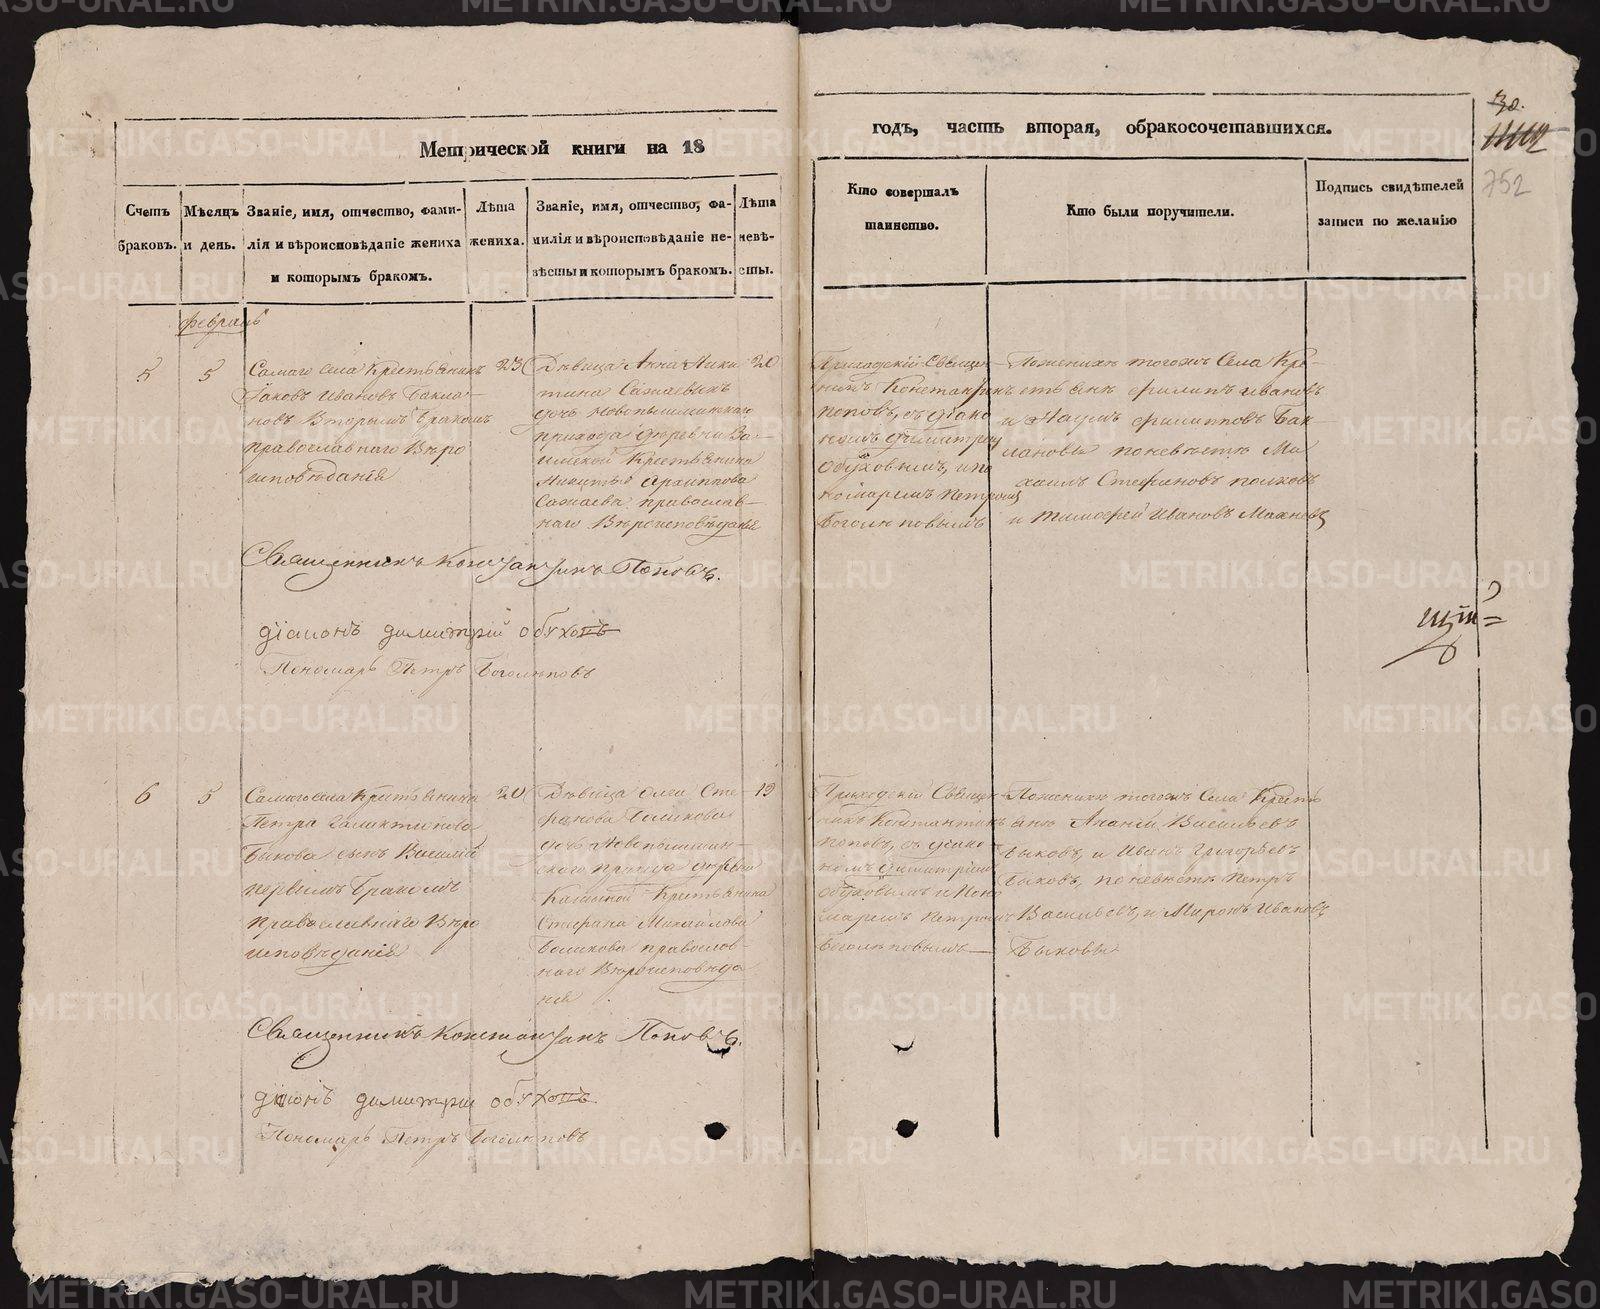 Метрической книги на 18
годъ, часть вторая, обракосочетавшихся.
30.
752
Счетъ браковъ.
Мѣсяцъ и день.
Званіе, имя, отчество, фами-
лія и вѣроисповѣданіе жениха
и которымъ бракомъ.
Лѣта
жениха.
Званіе, имя, отчество, фа-
милія и вѣроисповѣданіе не-
вѣсты и которымъ бракомъ.
Лѣта
невѣ-
сты.
Кто совершалъ
таинство.
Кто были поручители.
Подпись свидѣтелей
записи по желанію
февраль
5
5
Самаго села Крестьянинъ
Іаковъ Ивановъ Бакла-
новъ Вторымъ бракомъ
православнаго Вѣро
исповѣданія
23
Дѣвица Анна Ники
тина Сажаевыхъ
дочь Новопышминскаго
прихода деревни
Крестьянина
Никиты Архиппова
Сажаева православ-
наго Вѣроисповѣданія
20
Приходскій Священ-
никъ Константинъ
Поповъ, съ діако
номъ Димитріем
Обуховымъ, и по
номаремъ Петромъ
Боголюповымъ
По женихѣ тогожъ Села Кре-
стьяне Филипъ Ивановъ
и Наумъ Филипповъ Бак-
лановы по невѣстѣ Ми
хаилъ Стефановъ Волковъ
и Тимофей Ивановъ Махневъ
Священникъ Константинъ Поповъ.
діаконъ димитрій обуховъ
Пономарь Петръ Боголюповъ
6
5
Самаго села Крестьянина
Петра Галактіонова
Быкова сынъ Василій
первымъ Бракомъ
Православнаго Вѣро
исповѣданія
20
Дѣвица Ольга Сте-
фанова Балакова
дочь Новопышмин-
скаго Прихода деревни
Каменной Крестьянина
Стефана Михайлова
Балакова православ-
наго Вѣроисповѣда
нія
19
Приходскій Священ-
никъ Константинъ
Поповъ, съ діако
номъ Димитріем
Обуховымъ и Поно
маремъ Петромъ
Боголюповымъ
По женихѣ тогожъ Села Кресть
яне Ананій Васильевъ
Быковъ, и Иванъ Григорьевъ
Быковъ, по невѣстѣ Петръ
Васильевъ, и Миронъ Ивановъ
Быковы
Священникъ Константинъ Поповъ.
діаконъ димитрій обуховъ
Пономарь Петръ Боголюповъ
METRIKI.GASO-URAL.RU